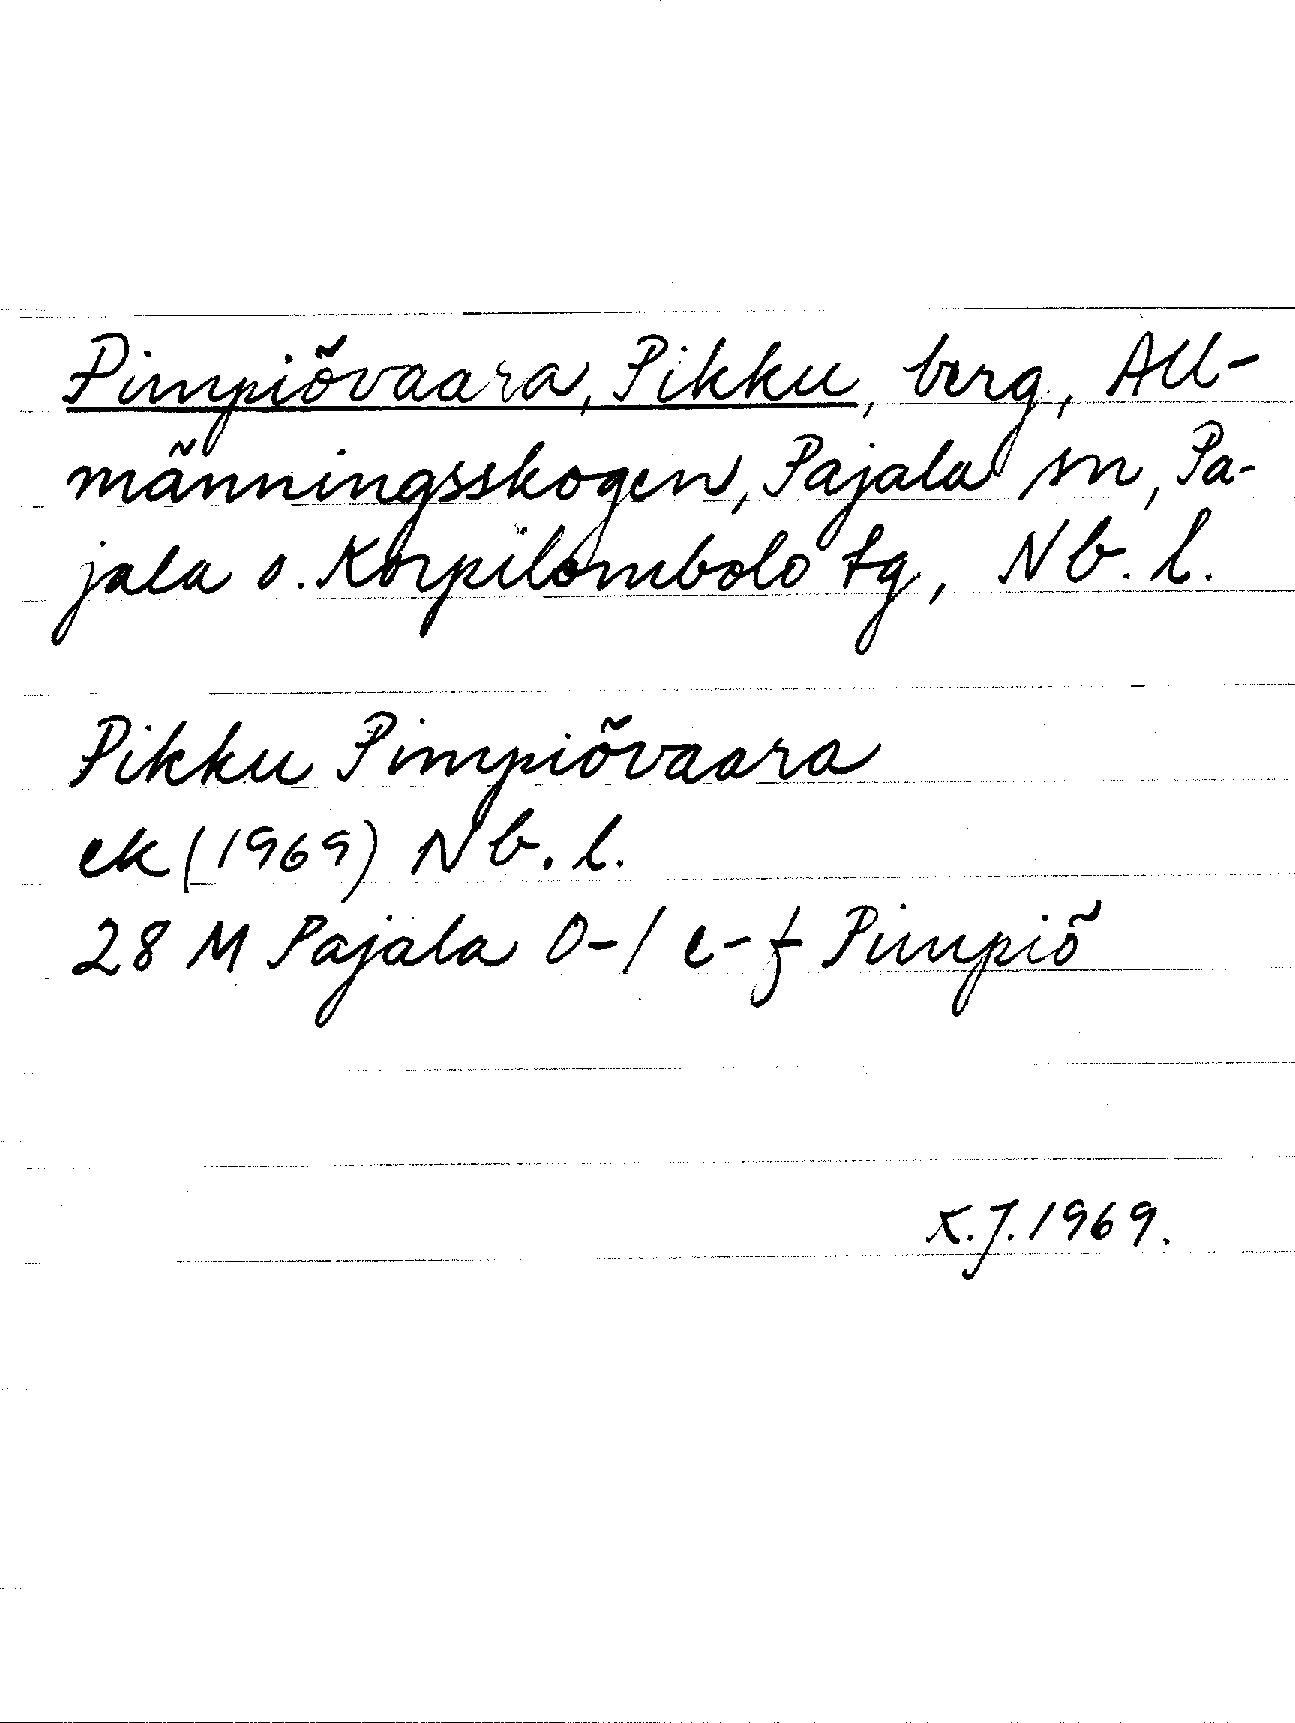 Pimpiövaara, Pikku, berg, All-
männingsskogen, Pajala sn, Pa-
jala o. Korpilombolo tg, Nb. l.
Pikku Pimpiövaara
ek (1969) Nb. l.
28 M Pajala 0-1 e-f Pimpiö
K.J. 1969.